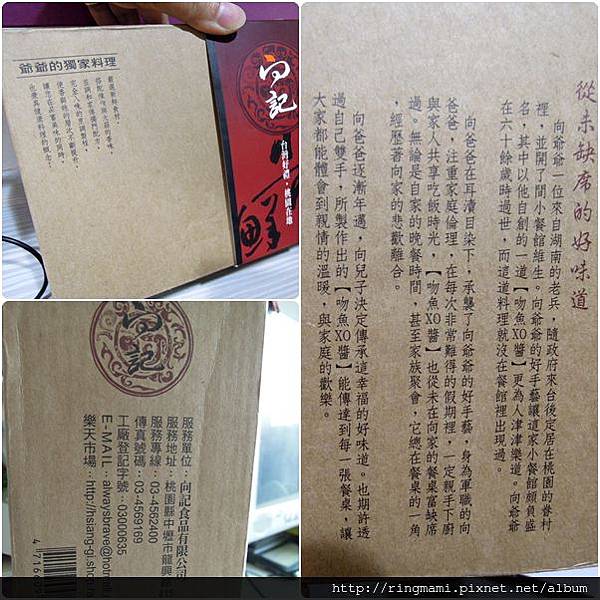 爺爺的獨家料理
嚴選新鮮食材,
搭配味吻無太腥的香味,
並調和家傳獨門配方,
完全入味的烹調製程,
使香與辣的層次不斷提升,
讓您在品嘗美味的同時,
也兼具健康料理的概念!
向記
台灣好禮,桃園在地
鮮
從未缺席的好味道
向爺爺一位來自湖南的老兵,隨政府來台後定居在桃園的眷村
裡,並開了間小餐館維生。向爺爺的好手藝讓這家小餐館頗負盛
名,其中以他自創的一道【吻魚XO醬】更為人津津樂道。向爺爺
在六十餘歲時過世,而這道料理就沒在餐館裡出現過。
向爸爸在耳濡目染下,承襲了向爺爺的好手藝,身為軍職的向
爸爸,注重家庭倫理,在每次非常難得的假期裡,一定親手下廚
與家人共享吃飯時光,【吻魚XO醬】也從未在向家的餐桌當缺席
過。無論是自家的晚餐時間,甚至家族聚會,它總在餐桌的一角
,經歷著向家的悲歡離合。
向爸爸逐漸年邁,向兒子決定傳承這幸福的好味道。也期許透
過自己雙手,所製作出的【吻魚XO醬】能傳達到每一張餐桌,讓
大家都能體會到親情的溫暖,與家庭的歡樂。
向記
服務單位:向記食品有限公司
服務地址:桃園縣中壢市龍興
服務專線:03-4562400
傳真號碼:03-4569169
工廠登記計號:03000635
E-MAIL:alwaysbrave@hotmai
樂天市場:http://hsiang-gi.shop.ra
4 7166
http://ringmami.pixnet.net/album